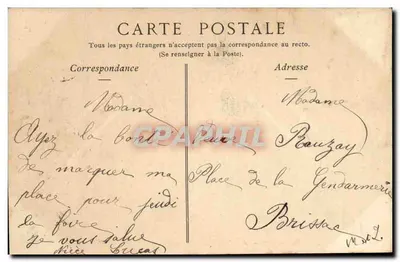 CARTE POSTALE
Tous les pays étrangers n'acceptent pas la correspondance au recto.
(Se renseigner à la Poste).
Correspondance
Madame
Ayez la bonté
de marquer ma
place pour jeudi
la foire
je vous salue
Lucas
Adresse
Madame
Rouzay
Place de la Gendarmerie
Brissac
M. et L.
CARTHAPHILE